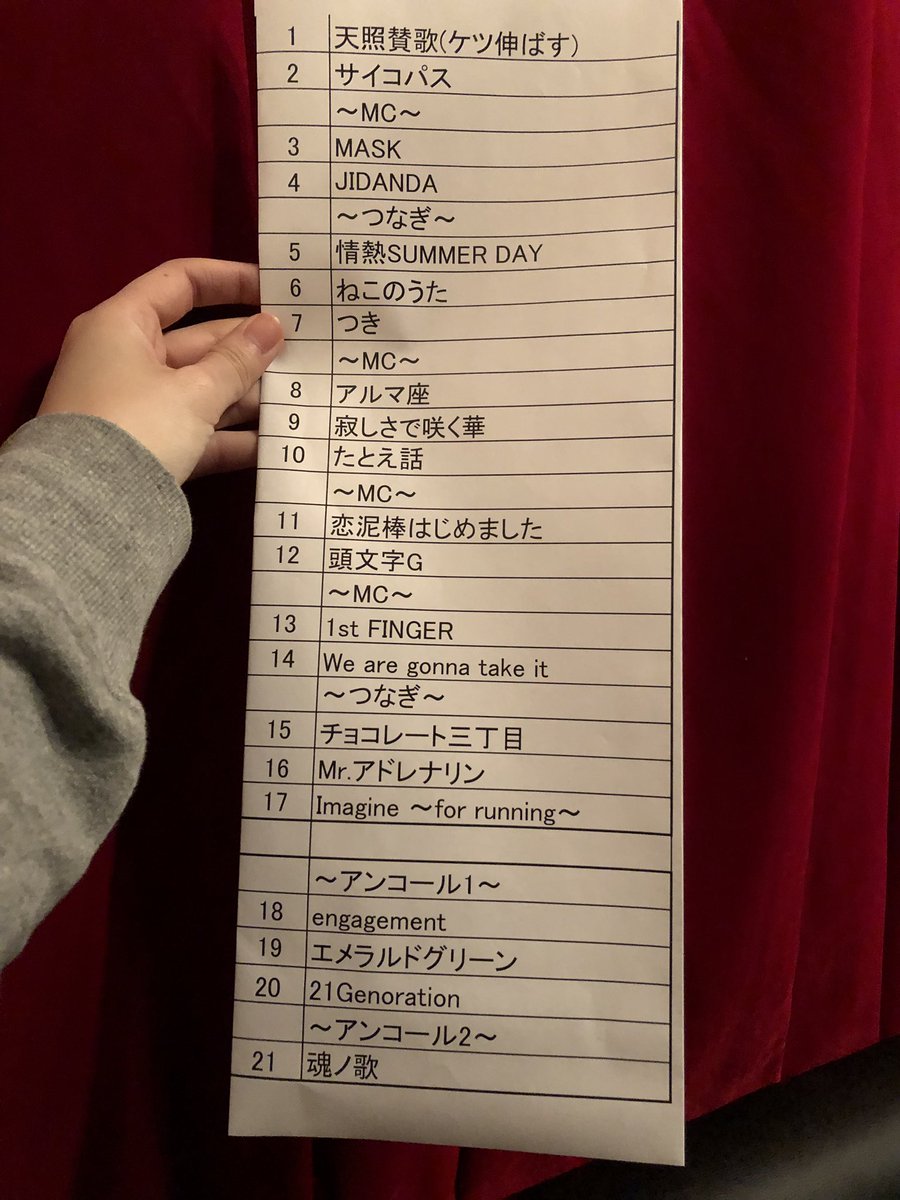 1 天照賛歌(ケツ伸ばす)
2 サイコパス
～MC～
3 MASK
4 JIDANDA
～つなぎ～
5 情熱SUMMER DAY
6 ねこのうた
7 つき
～MC～
8 アルマ座
9 寂しさで咲く華
10 たとえ話
～MC～
11 恋泥棒はじめました
12 頭文字G
～MC～
13 1st FINGER
14 We are gonna take it
～つなぎ～
15 チョコレート三丁目
16 Mr.アドレナリン
17 Imagine ～for running～
～アンコール1～
18 engagement
19 エメラルドグリーン
20 21Genoration
～アンコール2～
21 魂ノ歌